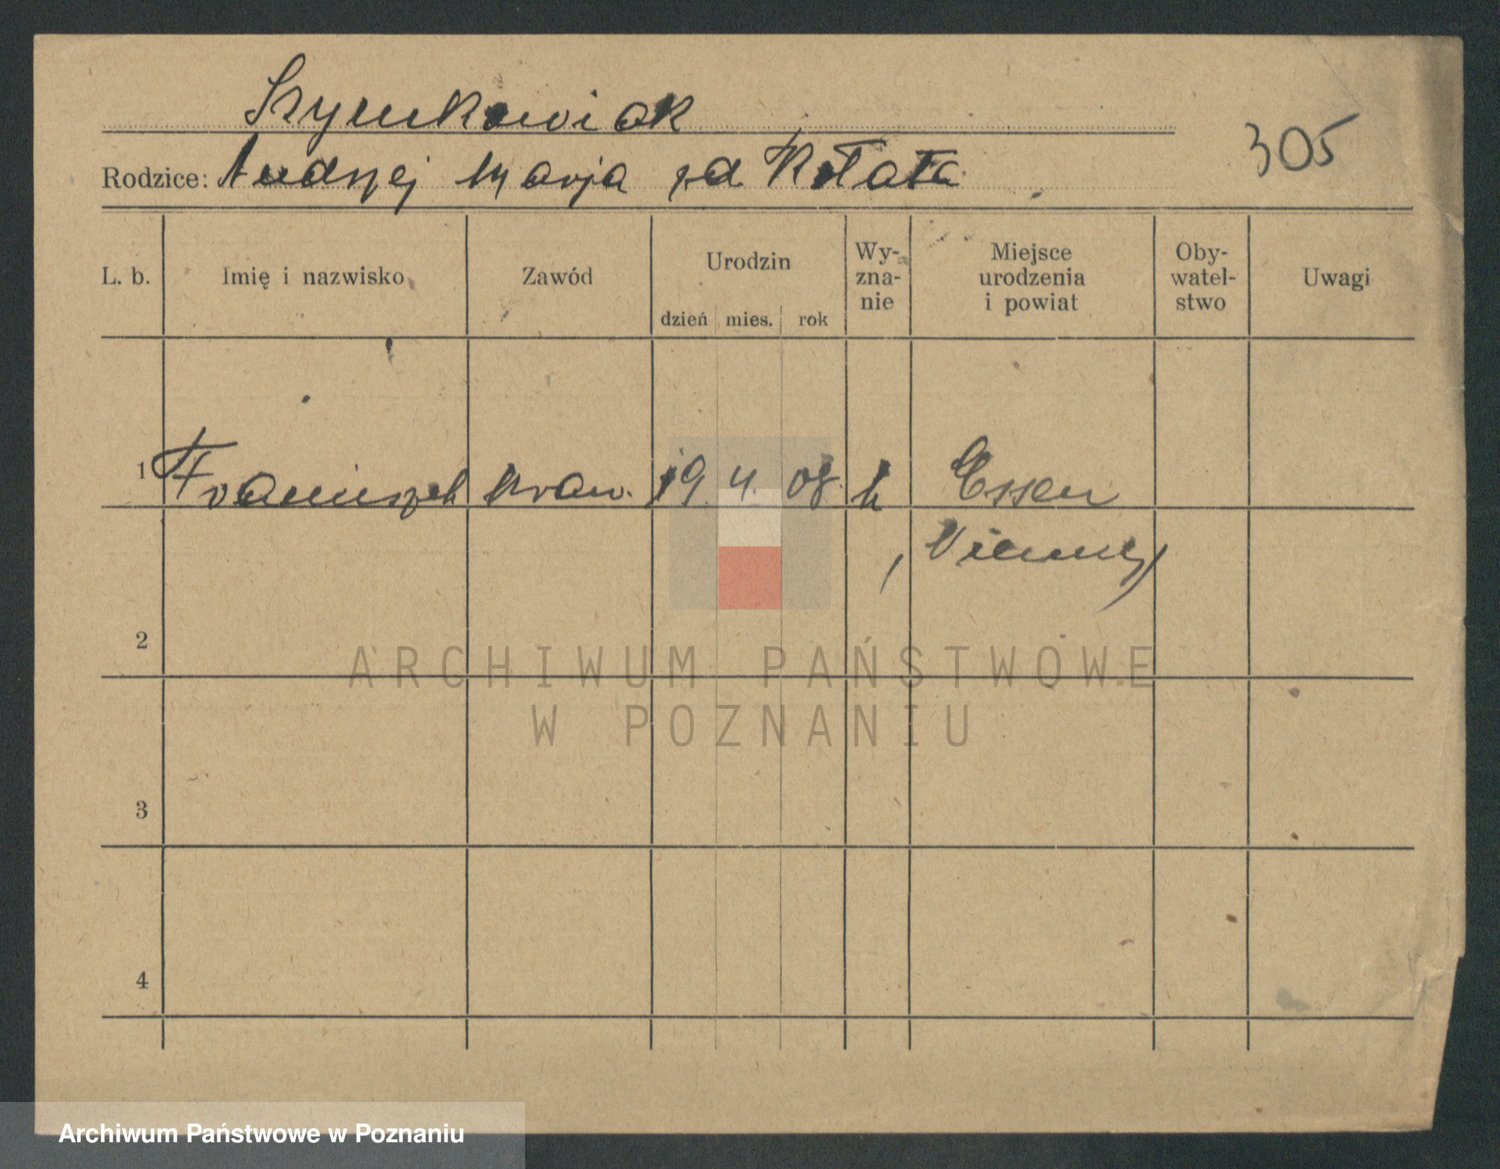 Szymkowiak
305
Rodzice: Andrzej Marja zd Kołata
L. b. Imię i nazwisko Zawód Urodzin dzień mies. rok Wy-zna-nie Miejsce urodzenia i powiat Oby-watel-stwo Uwagi
1 Franciszek kraw. 19. 4. 08. k Essen
(Niemcy)
2
ARCHIWUM PAŃSTWOWE
W POZNANIU
3
4
Archiwum Państwowe w Poznaniu